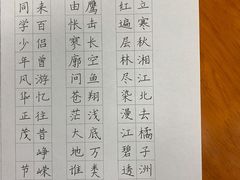 立寒秋湘江北去橘子洲
红遍层林尽染漫江碧透
鹰击长空鱼翔浅底万类
由怅寥廓问苍茫大地谁
来百侣曾游忆往昔峥嵘
同学少年风华正茂 节